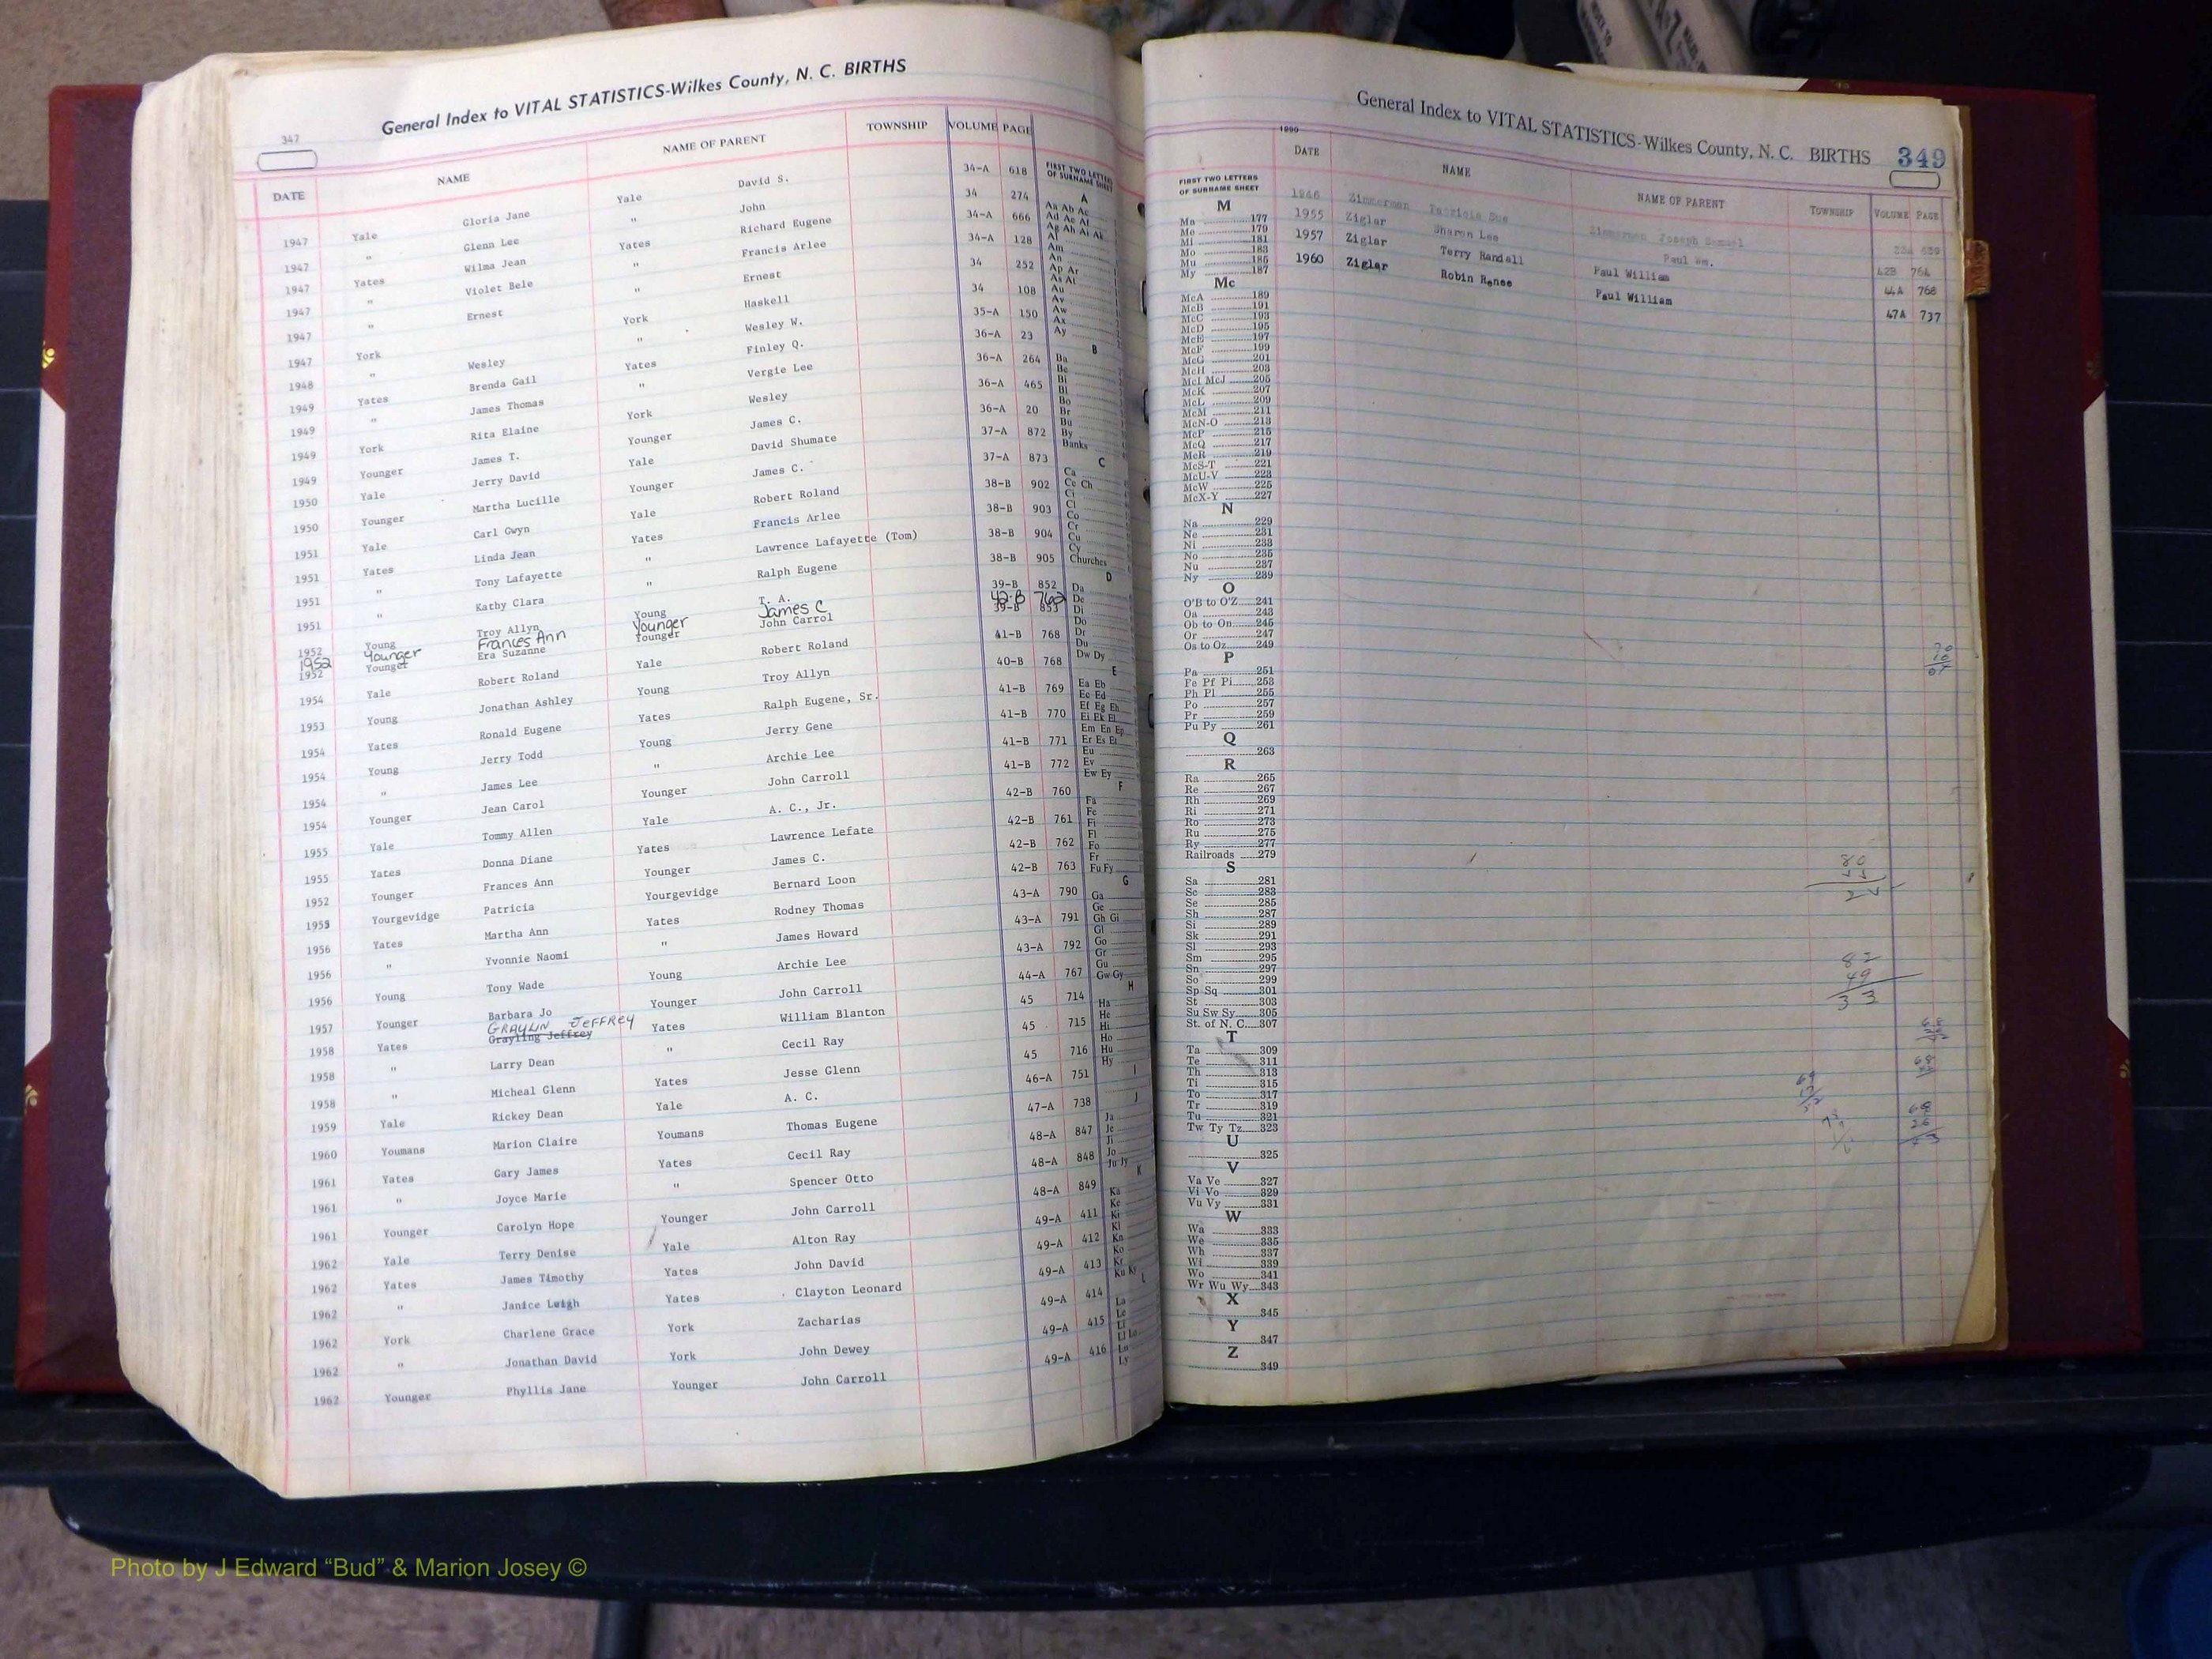 General Index to VITAL STATISTICS-Wilkes County, N. C. BIRTHS
347
DATE NAME NAME OF PARENT TOWNSHIP VOLUME PAGE
1947 Yale Gloria Jane Yale David S. 34-A 618
1947 " Glenn Lee " John 34 274
1947 Yates Wilma Jean Yates Richard Eugene 34-A 666
1947 " Violet Bele " Francis Arlee 34-A 128
1947 " Ernest " Ernest 34 252
1947 York York Haskell 34 108
1948 " Wesley " Wesley W. 35-A 150
1949 Yates Brenda Gail Yates Finley Q. 36-A 23
1949 " James Thomas " Vergie Lee 36-A 264
1949 York Rita Elaine York Wesley 36-A 465
1949 Younger James T. Younger James C. 36-A 20
1950 Yale Jerry David Yale David Shumate 37-A 872
1950 Younger Martha Lucille Younger James C. 37-A 873
1951 Yale Carl Gwyn Yale Robert Roland 38-B 902
1951 Yates Linda Jean Yates Francis Arlee 38-B 903
1951 " Tony Lafayette " Lawrence Lafayette (Tom) 38-B 904
1951 " Kathy Clara " Ralph Eugene 38-B 905
1952 Young Troy Allyn Young T. A. 39-B 852
1952 Younger Frances Ann Younger James C 42-B 762
1952 Younger Era Suzanne Younger John Carrol 39-B 853
1954 Yale Robert Roland Yale Robert Roland 41-B 768
1953 Young Jonathan Ashley Young Troy Allyn 40-B 768
1954 Yates Ronald Eugene Yates Ralph Eugene, Sr. 41-B 769
1954 Young Jerry Todd Young Jerry Gene 41-B 770
1954 " James Lee " Archie Lee 41-B 771
1954 Younger Jean Carol Younger John Carroll 41-B 772
1955 Yale Tommy Allen Yale A. C., Jr. 42-B 760
1955 Yates Donna Diane Yates Lawrence Lefate 42-B 761
1952 Younger Frances Ann Younger James C. 42-B 762
1955 Yourgevidge Patricia Yourgevidge Bernard Loon 42-B 763
1956 Yates Martha Ann Yates Rodney Thomas 43-A 790
1956 " Yvonnie Naomi " James Howard 43-A 791
1956 Young Tony Wade Young Archie Lee 43-A 792
1957 Younger Barbara Jo Younger John Carroll 44-A 767
GRAYLIN JEFFREY
1958 Yates Grayling Jeffrey Yates William Blanton 45 714
1958 " Larry Dean " Cecil Ray 45 715
1958 " Micheal Glenn Yates Jesse Glenn 45 716
1959 Yale Rickey Dean Yale A. C. 46-A 751
1960 Youmans Marion Claire Youmans Thomas Eugene 47-A 738
1961 Yates Gary James Yates Cecil Ray 48-A 847
1961 " Joyce Marie " Spencer Otto 48-A 848
1961 Younger Carolyn Hope Younger John Carroll 48-A 849
1962 Yale Terry Denise Yale Alton Ray 49-A 411
1962 Yates James Timothy Yates John David 49-A 412
1962 " Janice Leigh Yates Clayton Leonard 49-A 413
1962 York Charlene Grace York Zacharias 49-A 414
1962 " Jonathan David York John Dewey 49-A 415
1962 Younger Phyllis Jane Younger John Carroll 49-A 416
FIRST TWO LETTERS
OF SURNAME SHEET
A
Aa Ab Ac
Ad Ae Af
Ag Ah Ai Ak
Al
Am
An
Ap Ar
As At
Au
Av
Aw
Ax
Ay
B
Ba
Be
Bi
Bl
Bo
Br
Bu
By
Banks
C
Ca
Ce Ch
Ci
Cl
Co
Cr
Cu
Cy
Churches
D
Da
De
Di
Do
Dr
Du
Dw Dy
E
Ea Eb
Ec Ed
Ef Eg Eh
Ei Ek El
Em En Ep
Er Es Et
Eu
Ev
Ew Ey
F
Fa
Fe
Fi
Fl
Fo
Fr
Fu Fy
G
Ga
Ge
Gh Gi
Gl
Go
Gr
Gu
Gw Gy
H
Ha
He
Hi
Ho
Hu
Hy
I
J
Ja
Je
Ji
Jo
Ju Jy
K
Ka
Ke
Ki
Kl
Kn
Ko
Kr
Ku Ky
L
La
Le
Li
Ll Lo
Lu
Ly
General Index to VITAL STATISTICS-Wilkes County, N. C. BIRTHS 349
DATE NAME NAME OF PARENT TOWNSHIP VOLUME PAGE
1946 Zimmerman Patricia Sue Zimmerman Joseph Samuel
1955 Ziglar Sharon Lee Paul Wm. 42B 764
1957 Ziglar Terry Randell Paul William 44A 768
1960 Ziglar Robin Renee Paul William 47A 737
FIRST TWO LETTERS
OF SURNAME SHEET
M
Ma 177
Me 179
Mi 181
Mo 183
Mu 185
My 187
Mc
McA 189
McB 191
McC 193
McD 195
McE 197
McF 199
McG 201
McH 203
McI McJ 205
McK 207
McL 209
McM 211
McN-O 213
McP 215
McQ 217
McR 219
McS-T 221
McU-V 223
McW 225
McX-Y 227
N
Na 229
Ne 231
Ni 233
No 235
Nu 237
Ny 239
O
O'B to O'Z 241
Oa 243
Ob to On 245
Or 247
Os to Oz 249
P
Pa 251
Pe Pf Pi 253
Ph Pl 255
Po 257
Pr 259
Pu Py 261
Q
263
R
Ra 265
Re 267
Rh 269
Ri 271
Ro 273
Ru 275
Ry 277
Railroads 279
S
Sa 281
Sc 283
Se 285
Sh 287
Si 289
Sk 291
Sl 293
Sm 295
Sn 297
So 299
Sp Sq 301
St 303
Su Sw Sy 305
St. of N. C. 307
T
Ta 309
Te 311
Th 313
Ti 315
To 317
Tr 319
Tu 321
Tw Ty Tz 323
U
325
V
Va Ve 327
Vi Vo 329
Vu Vy 331
W
Wa 333
We 335
Wh 337
Wi 339
Wo 341
Wr Wu Wy 343
X
345
Y
347
Z
349
82
49
33
Photo by J Edward “Bud” & Marion Josey ©